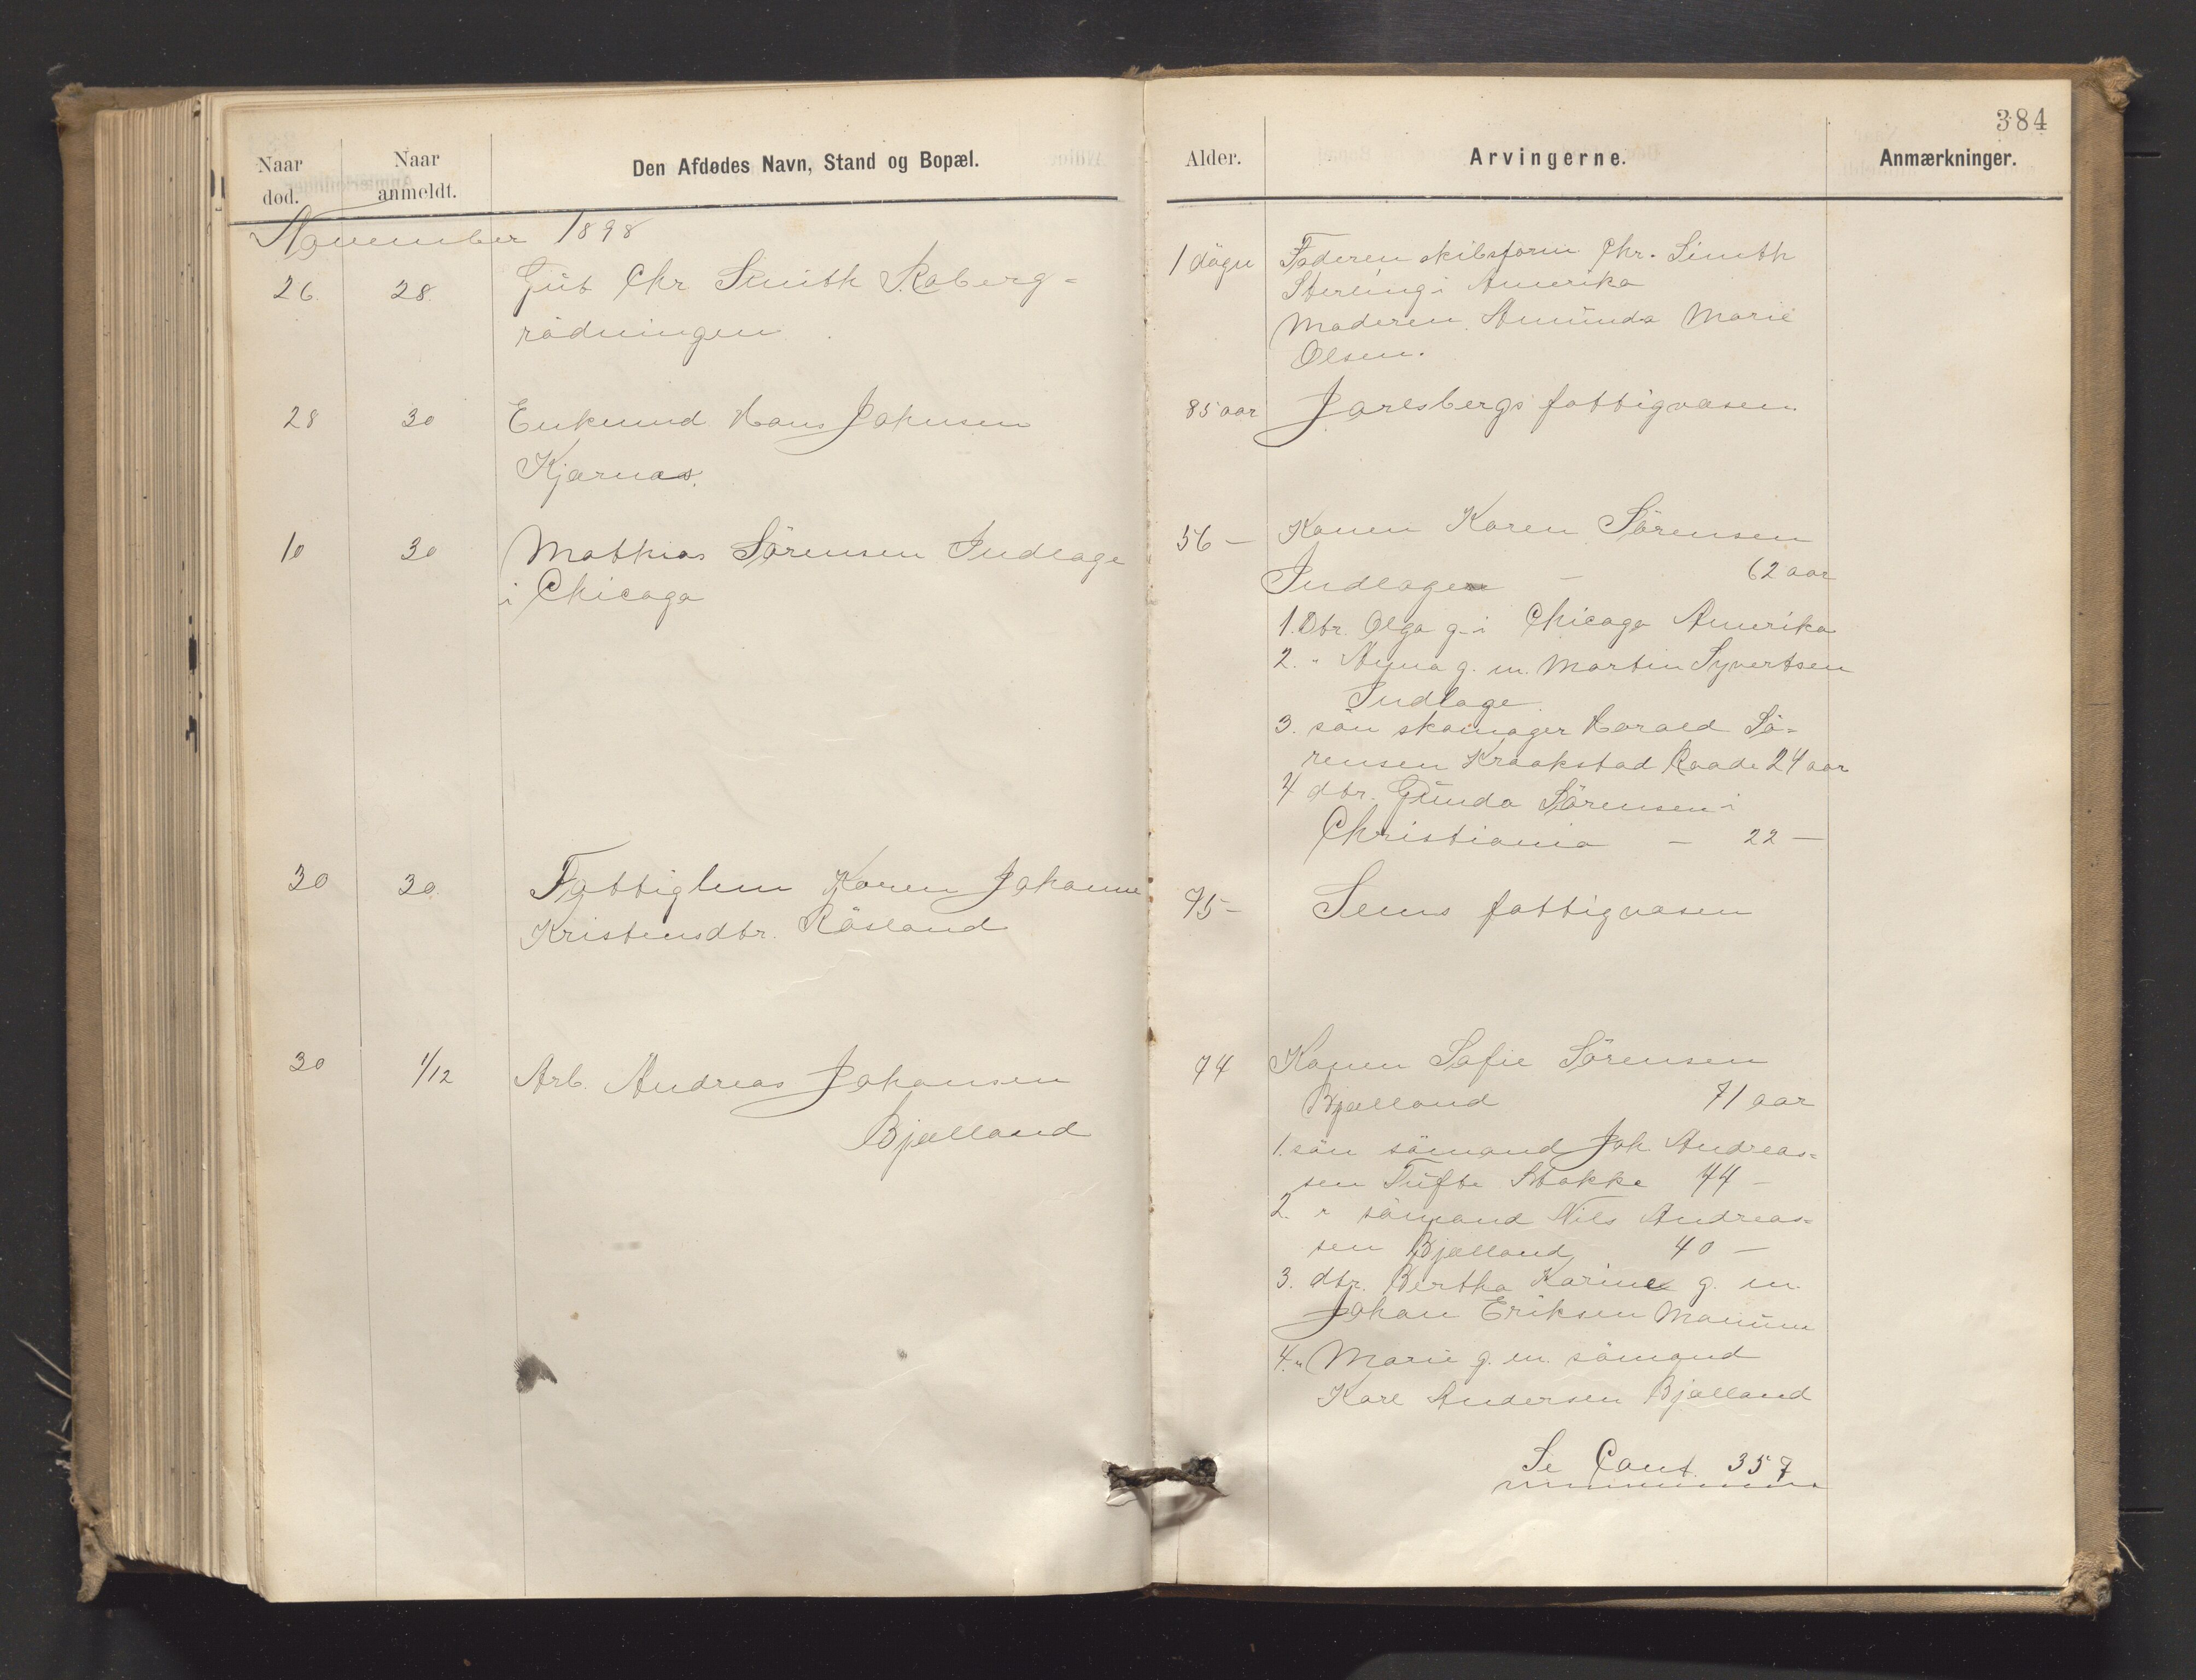 384
Naar død.
Naar anmeldt.
Den Afdødes Navn, Stand og Bopæl.
Alder.
Arvingerne.
Anmærkninger.
November 1898
26. 28. Gut Chr Smith Raberg=
rødningen.
1 døgn Faderen skibsføm Chr. Smith
Sterling i Amerika
Moderen Amunda Marie
Olsen.
28 30 Enkemd Hans Johnsen
Kjærnæs.
85 aar Jarlsbergs fattigvæsen
10 30 Mathias Sørensen Indlage
i Chicago
56 – Konen Karen Sørensen
Indlagen – 62 aar
1. Dtr. Olga g. i Chicago Amerika
2. " g. m. Martin Syvertsen
Indlage.
3. søn skomager Harald Sø=
rensen Kraakstad Raade 24 aar
4 dtr. Gunda Sørensen i
Christiania – 22 –
30 30. Fattiglem Karen Johanne
Kristensdtr. Røsland
75 – Sems fattigvæsen
30 1/12 Arb. Andreas Johansen
Bjælland
74 Konen Sofie Sørensen
Bjælland 71 aar
1. søn sømand Joh Andreas=
sen Tufte Stokke 44 –
2. " sømand Nils Andreas=
sen Bjælland 40 –
3. dtr. Bertha Karine g. m.
Johan Eriksen Manum
4. " Marie g. m. sømand
Karl Andersen Bjælland
Se Cont. 357